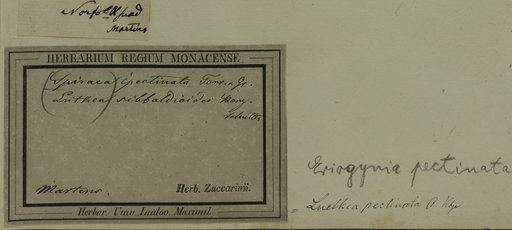 Norfolk
Martins
HERBARIUM REGIUM MONACENSE
(Spiraea) (pectinata Torr. & Gr.
Lutkea sibbaldioides Bong.
Martens.
Herb. Zuccarinii.
Herbar. Univ. Ludov. Maximil.
Eriogynia pectinata
= Luetkea pectinata O. Ktze